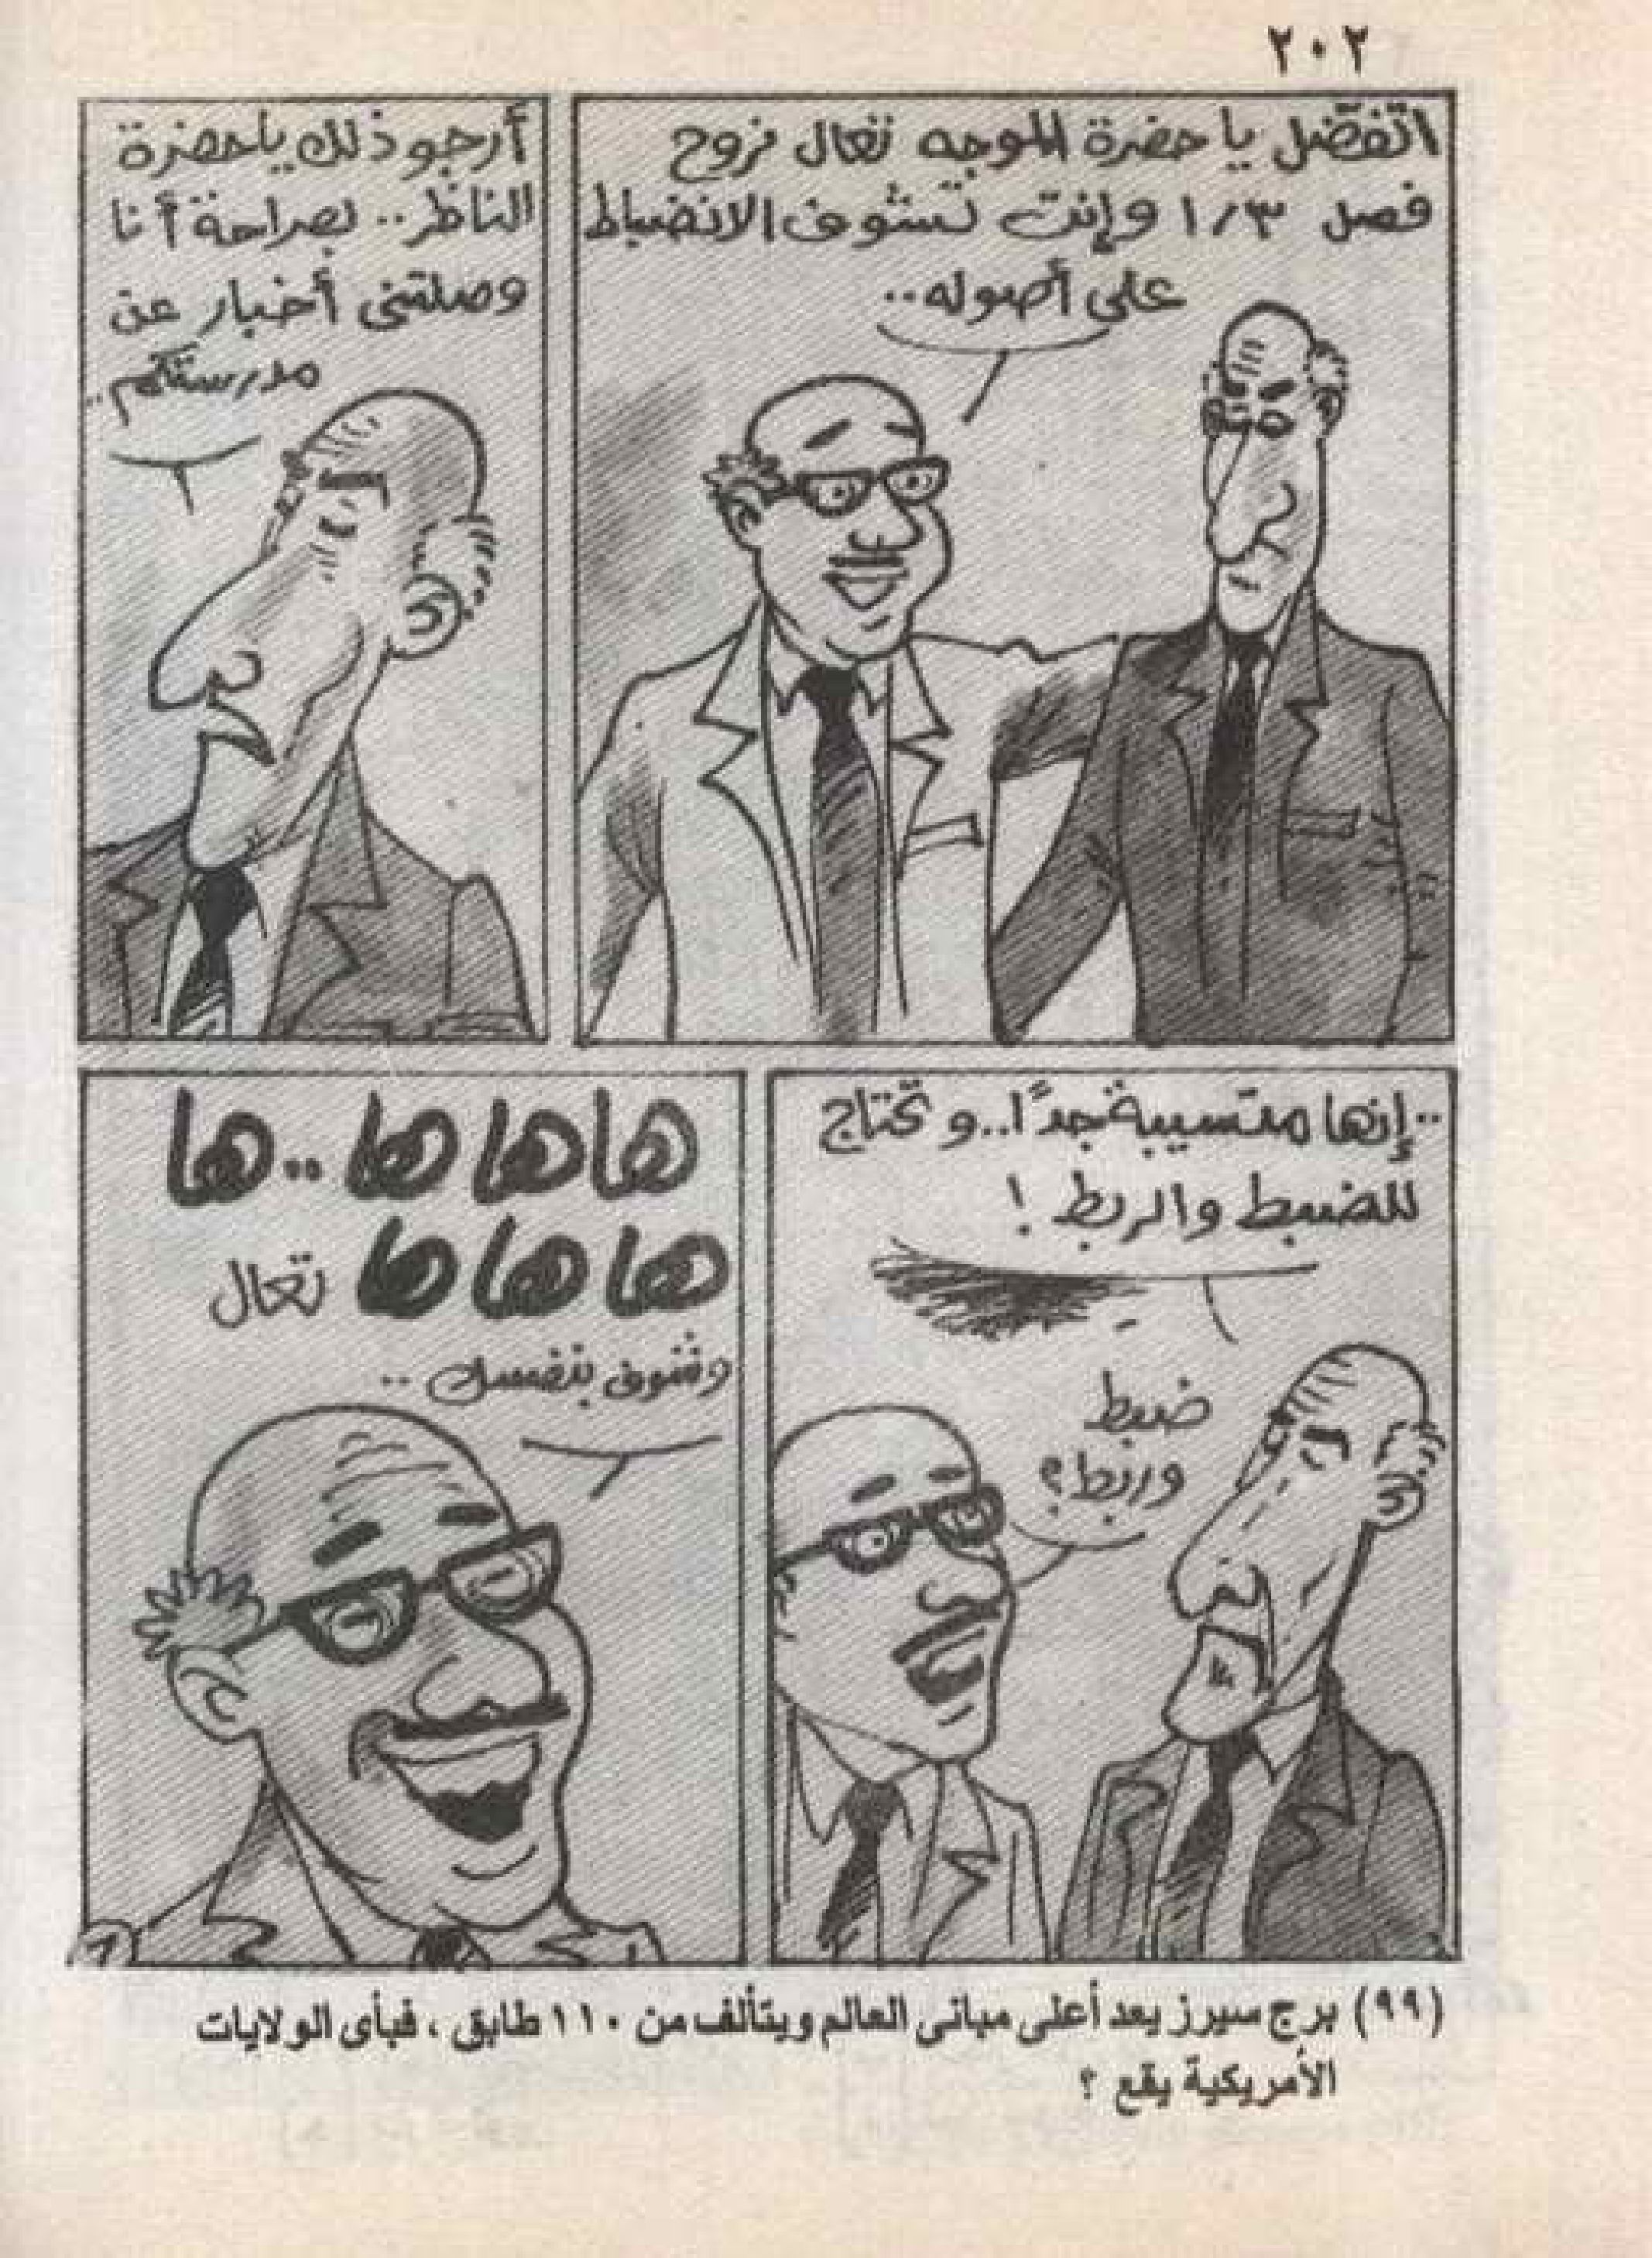 ٢٠٢
اتفضل يا حضرة الموجه تعال نروح
فصل ١/٣ وإنت تشوف الانضباط
على أصوله..
أرجو ذلك ياحضرة
الناظر.. بصراحة أنا
وصلتنى أخبار عن
مدرستكم..
..إنها متسيبة جدًا..و تحتاج
للضبط والربط !
ضبط
وربط؟
هاهاها..ها
هاهاها تعال
وشوف بنفسك..
(٩٩) برج سيرز يعد أعلى مبانى العالم ويتألف من ١١٠ طابق ، فبأى الولايات
الأمريكية يقع ؟